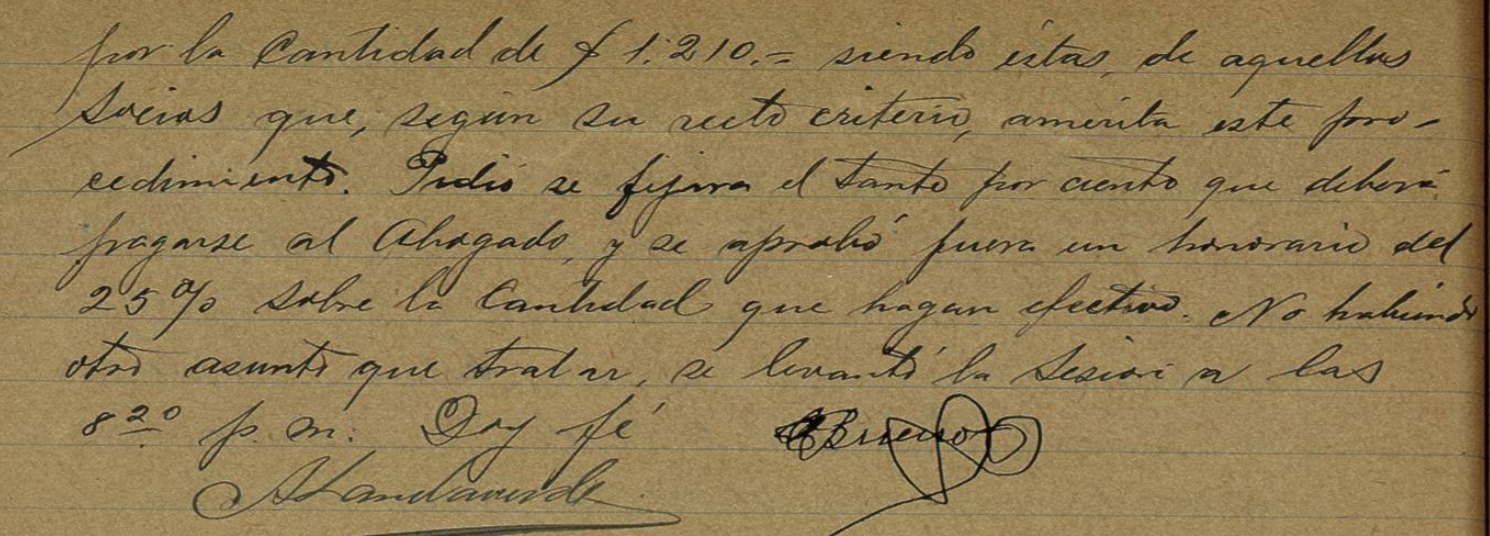 por la Cantidad de $ 1.210.= siendo éstas, de aquellos
socios que, según su recto criterio, amerita este pro-
cedimiento. Pidió se fijara el tanto por ciento que deberá
pagarse al Abogado, y se aprobó fuera un honorario del
25% sobre la Cantidad que hagan efectivo. No habiendo
otro asunto que tratar, se levantó la Sesión a las
8 20 p.m. Doy fé
ALandaverde